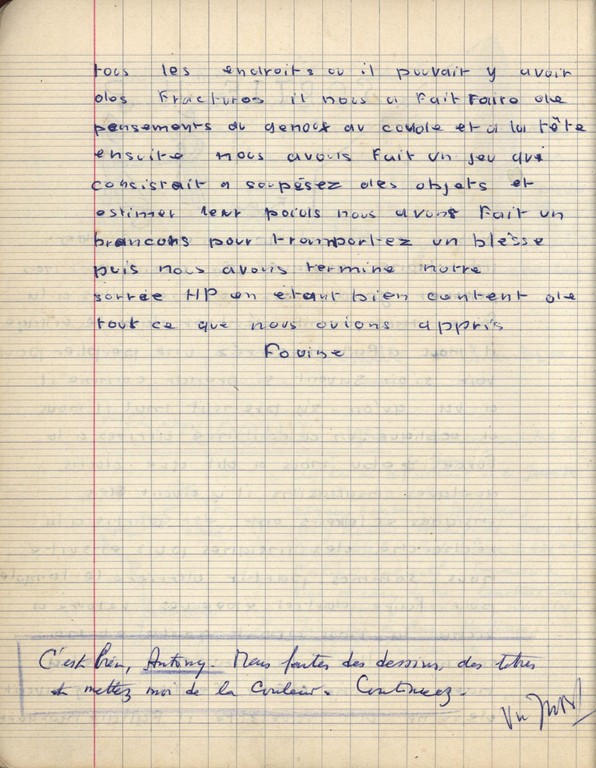 tous les endroits ou il pouvait y avoir
des Fractures il nous a Fait Faire de
pensements du genous du coude et a la tête
ensuite nous avons Fait un jeu qui
consistait a soupésez des objets et
estimer leur poids nous avons Fait un
brancars pour transportez un blésse
puis nous avons termine notre
sorrée HP en etant bien content de
tout ce que nous avions appris
Fouine
C'est bien, Antony. Mais faites des dessins, des titres
et mettez moi de la couleur. Continuez.
Vu